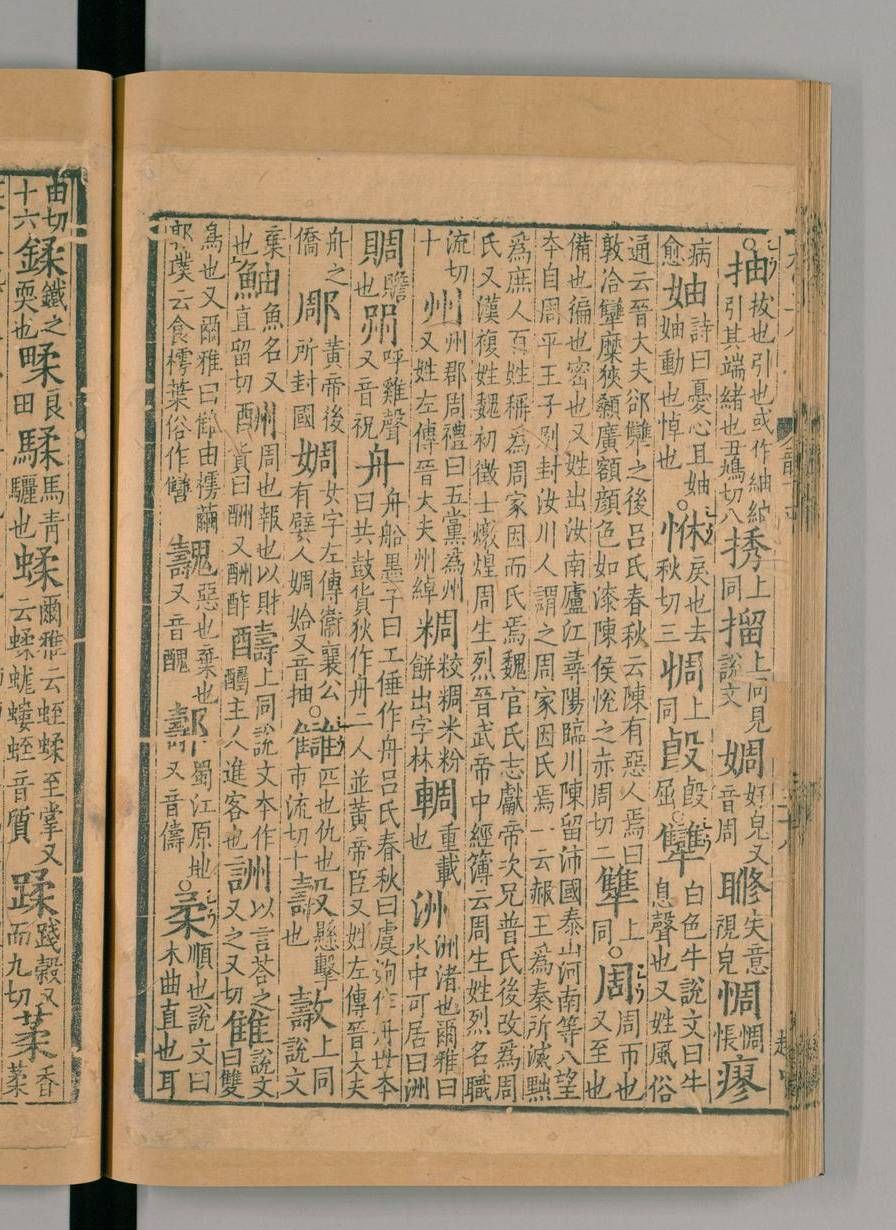 抽拔也引也或作紬紬引其端緒也丑鳩切八㨨上同㩅上同見說文婤好皃又音周䀺失意視皃惆惆悵瘳
病愈妯詩曰憂心且妯妯動也悼也○恘戾也去秋切三惆上同㱿屈○犨白色牛說文曰牛息聲也又姓風俗
通云晉大夫郤犨之後呂氏春秋云陳有惡人焉曰敦洽犨麋狹顙廣額顏色如漆陳侯恱之赤周切二犫上同○周周帀也又至也
備也徧也密也又姓出汝南廬江尋陽臨川陳留沛國泰山河南等八望本自周平王子別封汝川人謂之周家因氏焉一云赧王為秦所滅黜
為庶人百姓稱為周家因而氏焉魏官氏志獻帝次兄普氏後改為周氏又漢複姓魏初徵士燉煌周生烈晉武帝中經簿云周生姓烈名職
流切十州州郡周禮曰五黨為州又姓左傳晉大夫州綽米粉餅出字林輖重載也洲洲渚也爾雅曰水中可居曰洲
賙贍也喌呼雞聲又音祝舟舟船墨子曰工倕作舟呂氏春秋曰虞姁作舟世本曰共鼓貨狄作舟二人並黃帝臣又姓左傳晉大夫
舟之僑郮黃帝後所封國婤女字左傳衛襄公有嬖人婤姶又音抽○讎匹也仇也市流切十懸擊也上同說文
棄也鮋魚名又直留切酬周也報也以財貨曰酬又酬酢醻上同說文本作醻主人進客也詶以言荅之又之又切雔說文曰雙
鳥也又爾雅曰雔由樗繭郭璞云食樗葉俗作讎魗惡也棄也又音醜𨞪蜀江原地又音儔○柔順也說文曰木曲直也耳
由切十六鍒鐵之耎也㽥良田騥馬青驪也蝚爾雅云蛭蝚至掌又云蝚蛖螻蛭音質蹂踐穀又而九切葇香葇